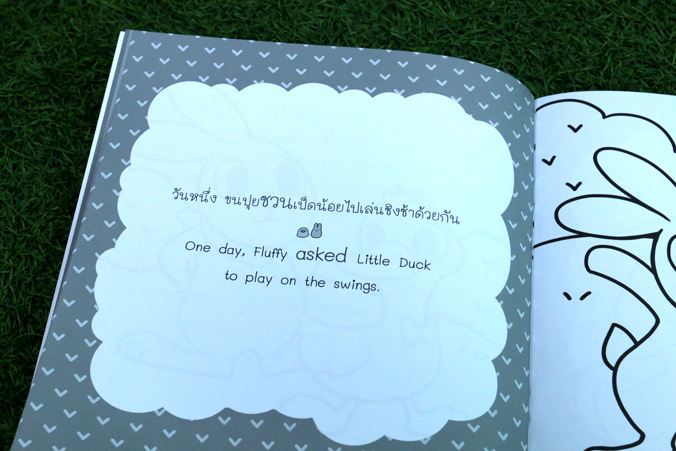 วันหนึ่ง ขนปุยชวนเป็ดน้อยไปเล่นชิงช้าด้วยกัน
One day, Fluffy asked Little Duck
to play on the swings.